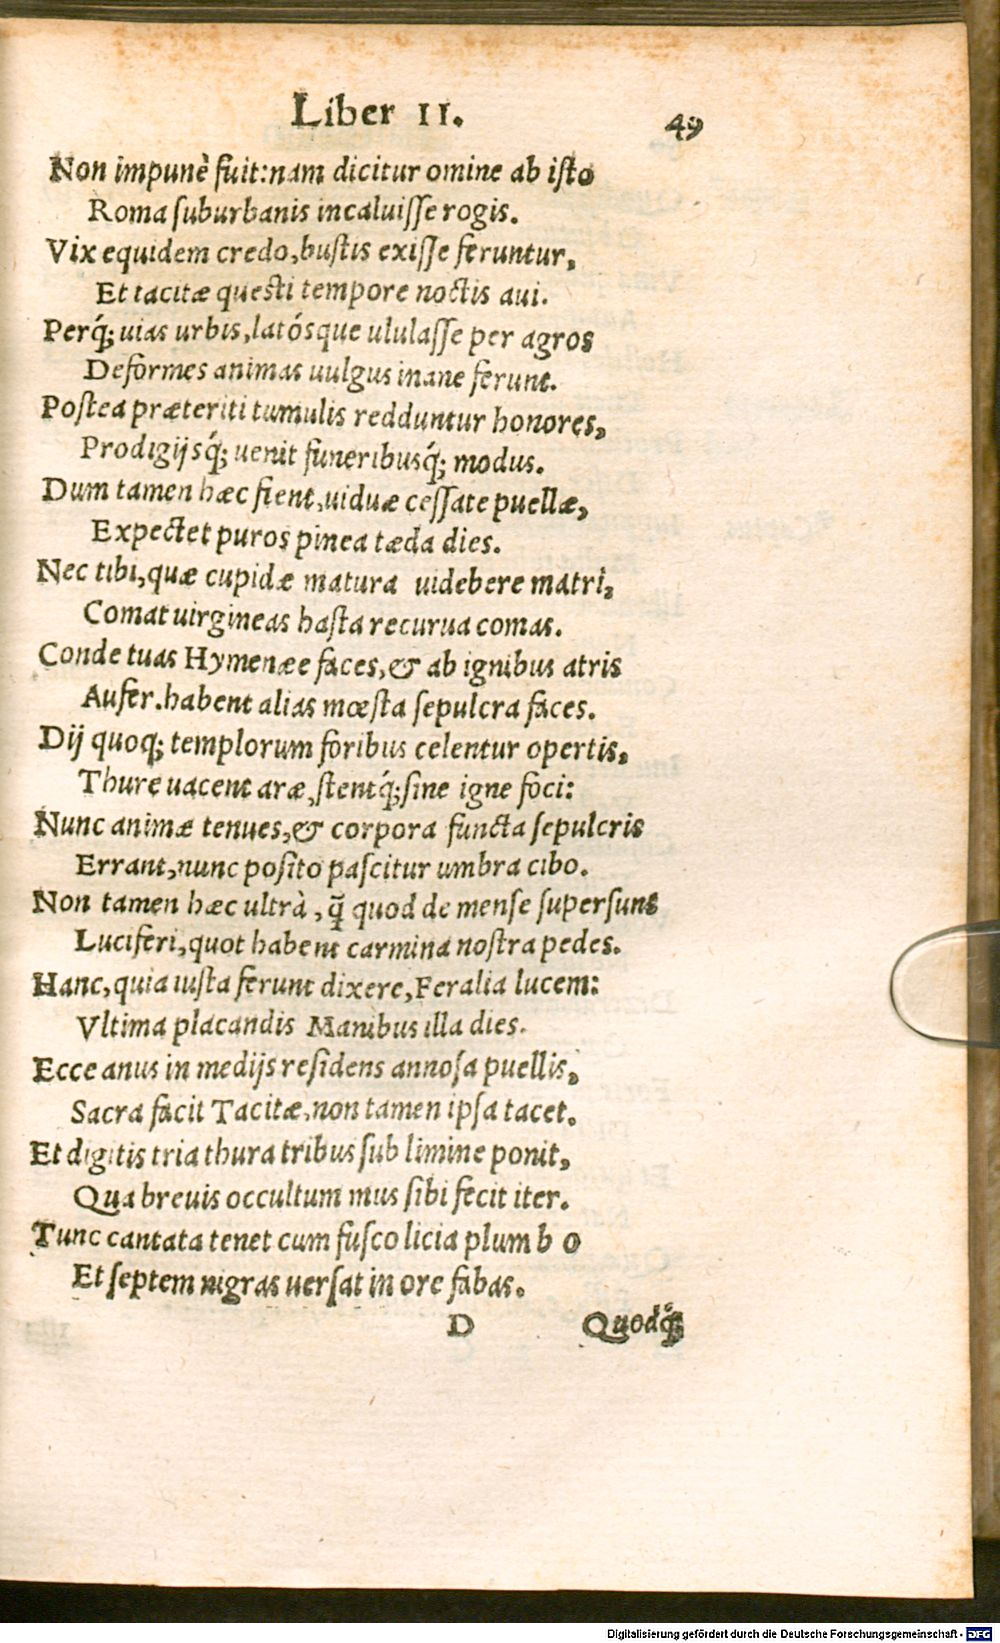 Liber II.
49
Non impunè fuit:nam dicitur omine ab iſto
Roma ſuburbanis incaluiſſe rogis.
Vix equidem credo,buſtis exiſſe feruntur,
Et tacitæ queſti tempore noctis aui.
Perq́; uias urbis,latósque ululaſſe per agros
Deformes animas uulgus inane ferunt.
Poſtea præteriti tumulis redduntur honores,
Prodigijsq́; uenit funeribusq́; modus.
Dum tamen hæc fient,uiduæ ceſſate puellæ,
Expectet puros pinea tæda dies.
Nec tibi,quæ cupidæ matura uidebere matri,
Comat uirgineas haſta recurua comas.
Conde tuas Hymenæe faces,& ab ignibus atris
Aufer.habent alias mœſta ſepulcra faces.
Dij quoq; templorum foribus celentur opertis,
Thure uacent aræ,ſtentq́;ſine igne foci:
Nunc animæ tenues,& corpora functa ſepulcris
Errant,nunc poſito paſcitur umbra cibo.
Non tamen hæc ultrà,q̃ quod de menſe ſuperſunt
Luciferi,quot habent carmina noſtra pedes.
Hanc,quia iuſta ferunt dixere,Feralia lucem:
Vltima placandis Manibus illa dies.
Ecce anus in medijs reſidens annoſa puellis,
Sacra facit Tacitæ,non tamen ipſa tacet.
Et digitis tria thura tribus ſub limine ponit,
Qua breuis occultum mus ſibi fecit iter.
Tunc cantata tenet cum fuſco licia plumbo
Et ſeptem nigras uerſat in ore fabas.
D
Quodq́;
Digitalisierung gefördert durch die Deutsche Forschungsgemeinschaft - DFG